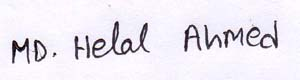 MD. Helal Ahmed